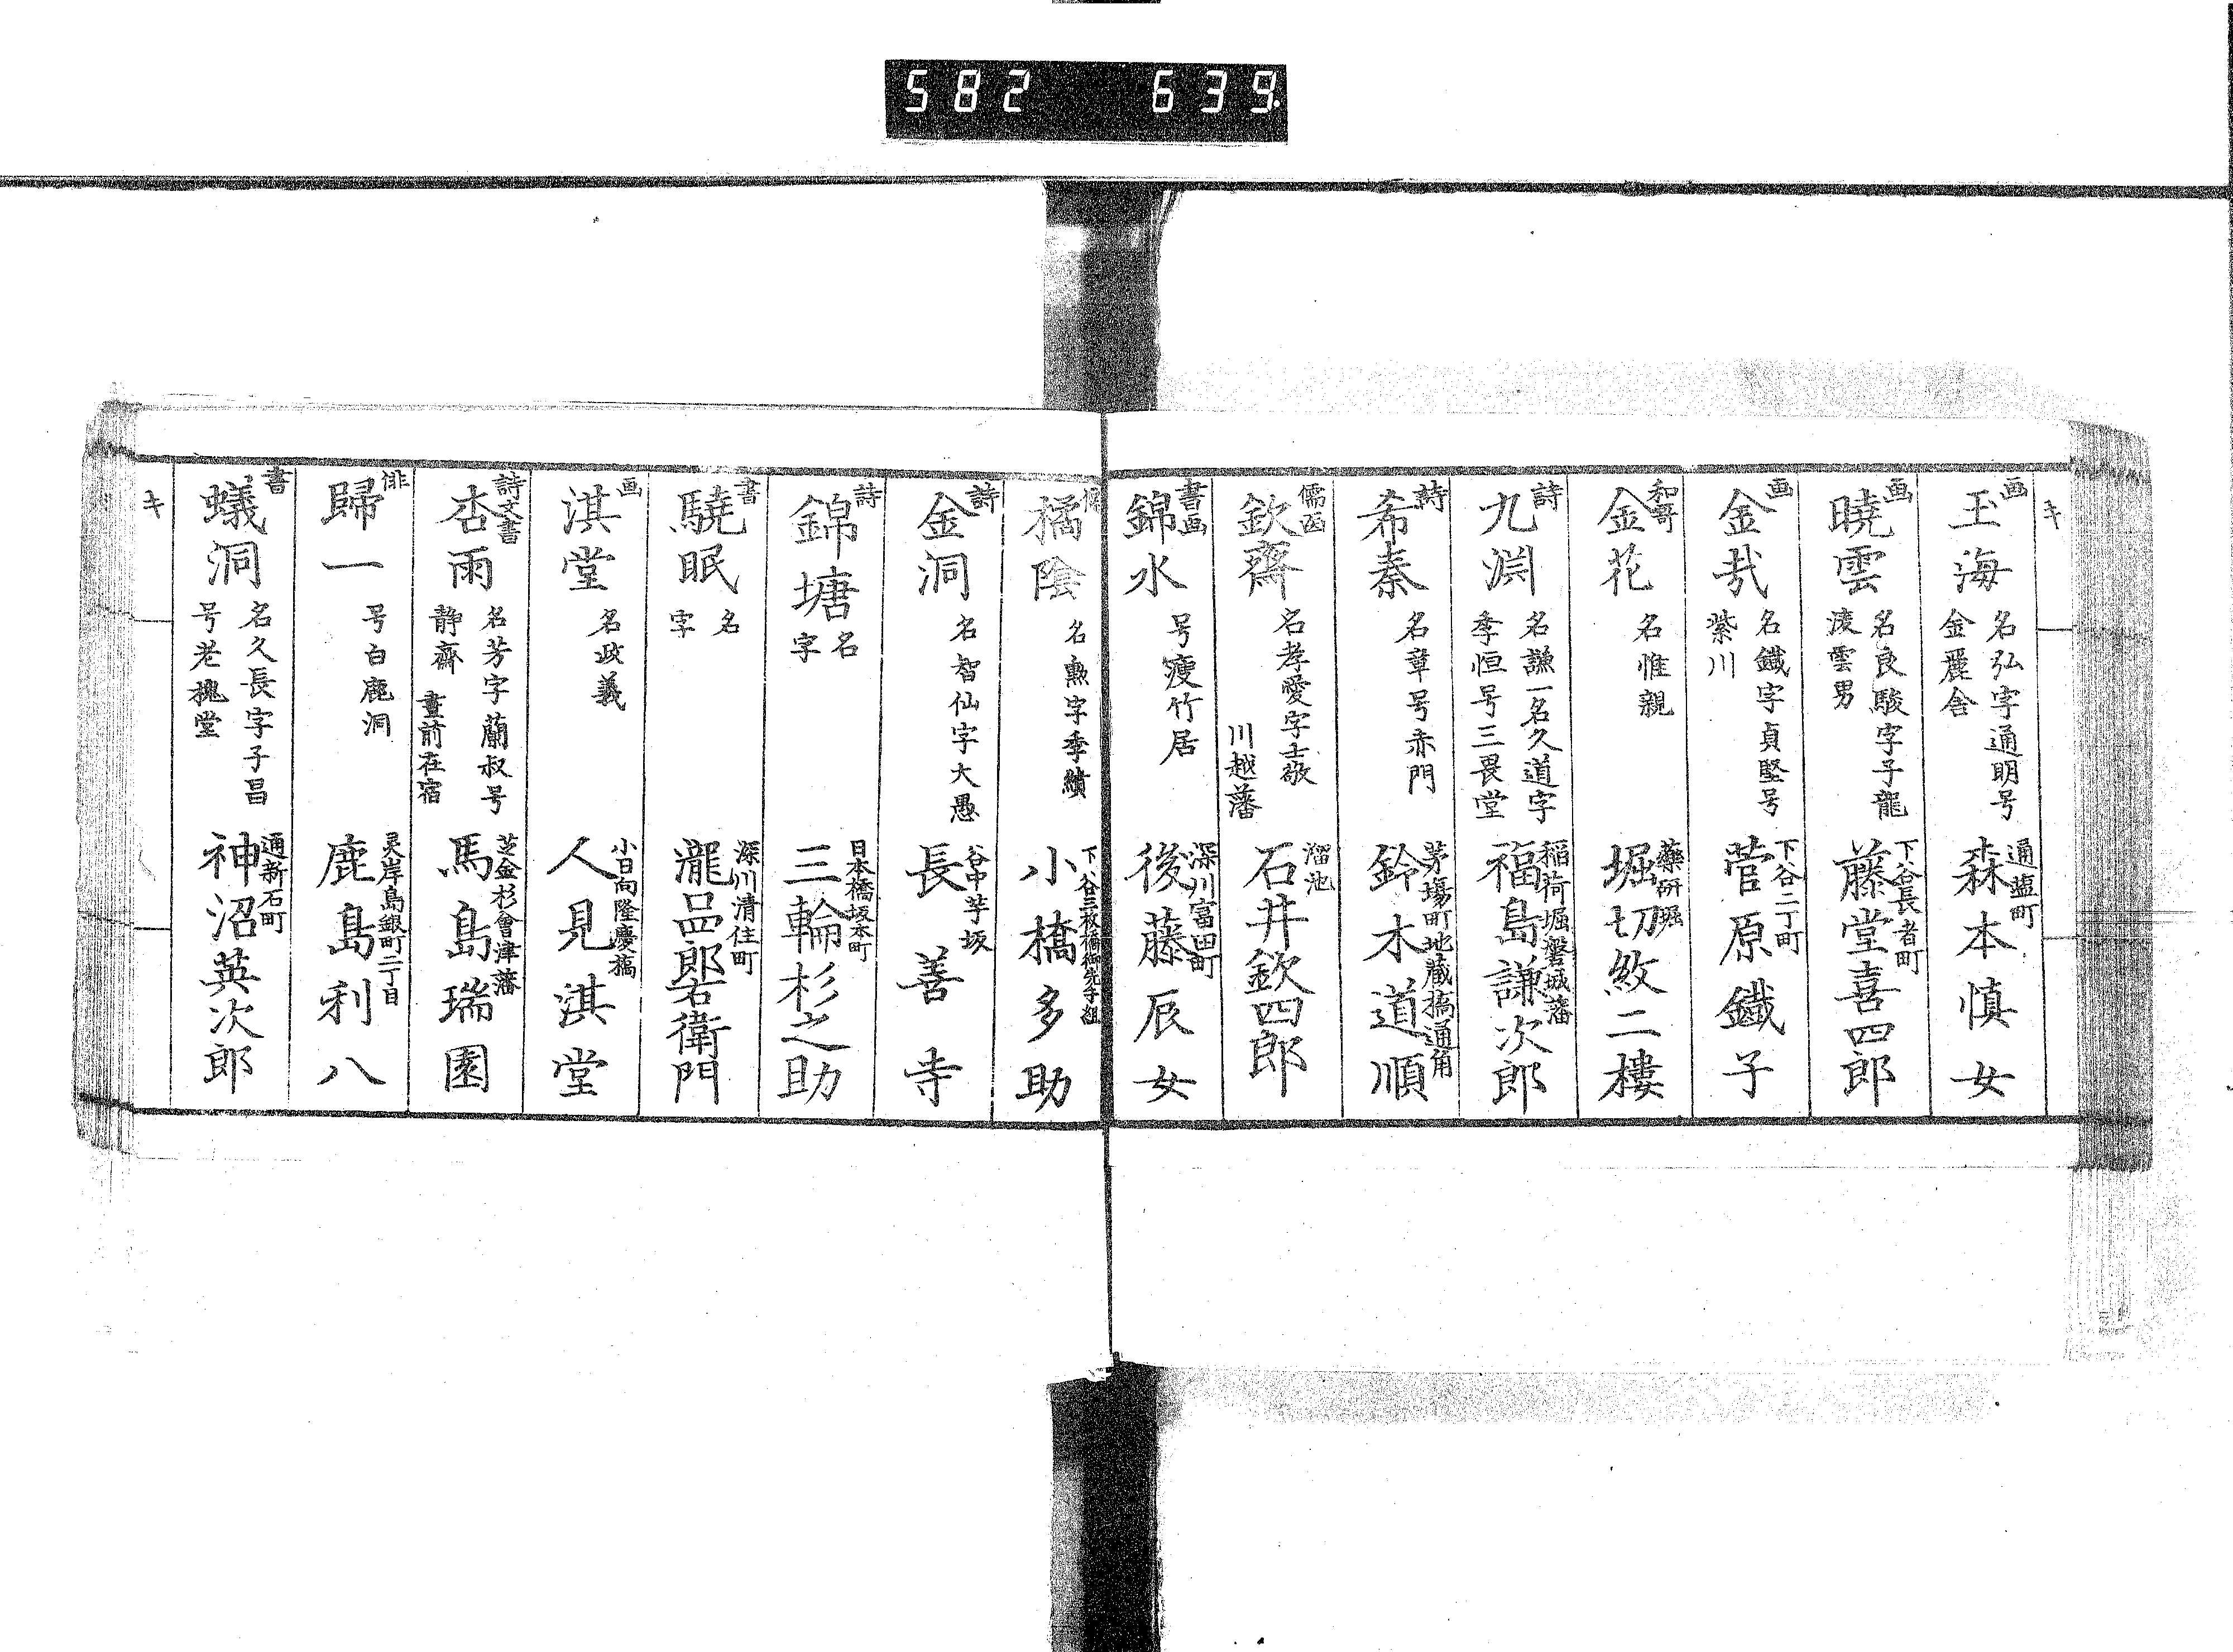 582 639.
キ
画
玉海
名弘字通明号
金麗舎
通塩町
森本慎女
画
曉雲
名良駿字子龍
凌雲男
下谷長者町
藤堂喜四郎
画
金哉
名鐵字貞堅号
紫川
下谷二丁町
菅原鐵子
和哥
金花
名惟親
藥研堀
堀切紋二樓
詩
九渕
名謙一名久道字
季恒号三畏堂
稲荷堀磐城藩
福島謙次郎
詩
希秦
名章号赤門
茅場町地蔵橋通角
鈴木道順
儒画
欽齋
名孝愛字士敬
川越藩
溜池
石井欽四郎
書画
錦水
号瘦竹居
深川富田町
後藤辰女
儒
橘陰
名勲字季績
下谷三枚橋御先手組
小橋多助
詩
金洞
名智仙字大愚
谷中芋坂
長善寺
詩
錦塘
名
字
日本橋坂本町
三輪杉之助
書
驍眠
名
字
深川清住町
瀧品郎右衛門
画
淇堂
名政義
小日向隆慶橋
人見淇堂
詩文書
杏雨
名芳字蘭叔号
静齋
畫前在宿
芝金杉會津藩
馬島瑞園
俳
歸一
号白鹿洞
灵岸島銀町二丁目
鹿島利八
書
蟻洞
名久長字子昌
号老槐堂
通新石町
神沼英次郎
キ